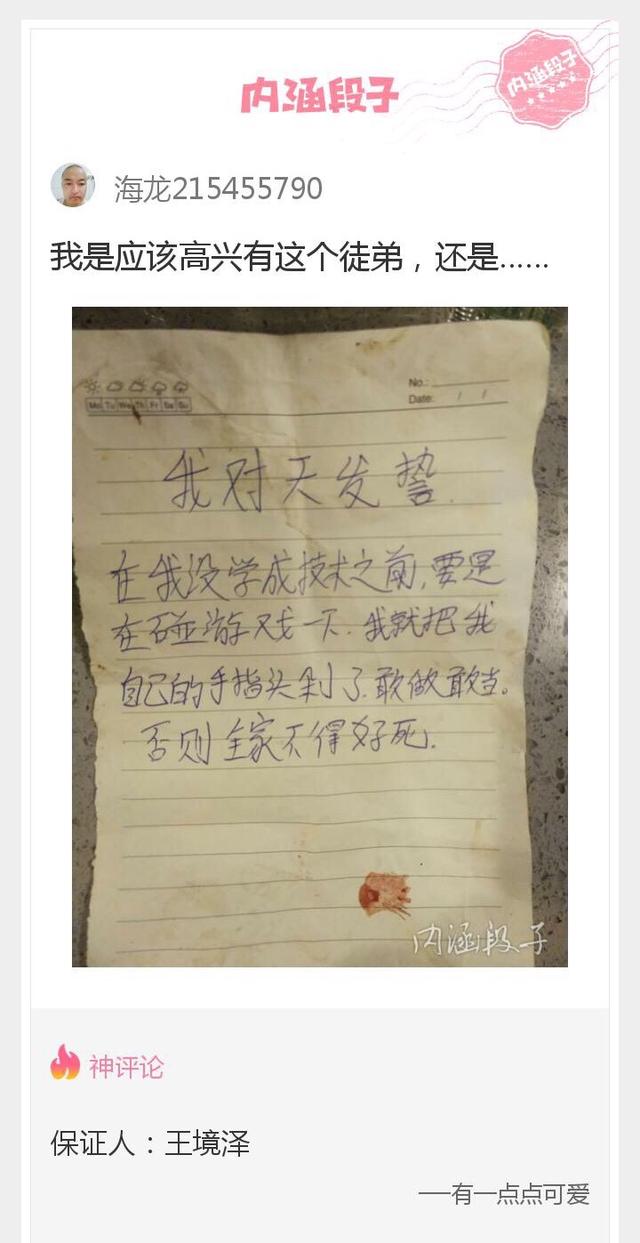 内涵段子
内涵段子
海龙215455790
我是应该高兴有这个徒弟，还是……
Mo Tu We Th Fr Sa Su
No.:
Date: / /
我对天发誓.
在我没学成技术之前,要是
在碰游戏一下.我就把我
自己的手指头剁了.敢做敢当。
否则全家不得好死.
内涵段子
神评论
保证人：王境泽
——有一点点可爱